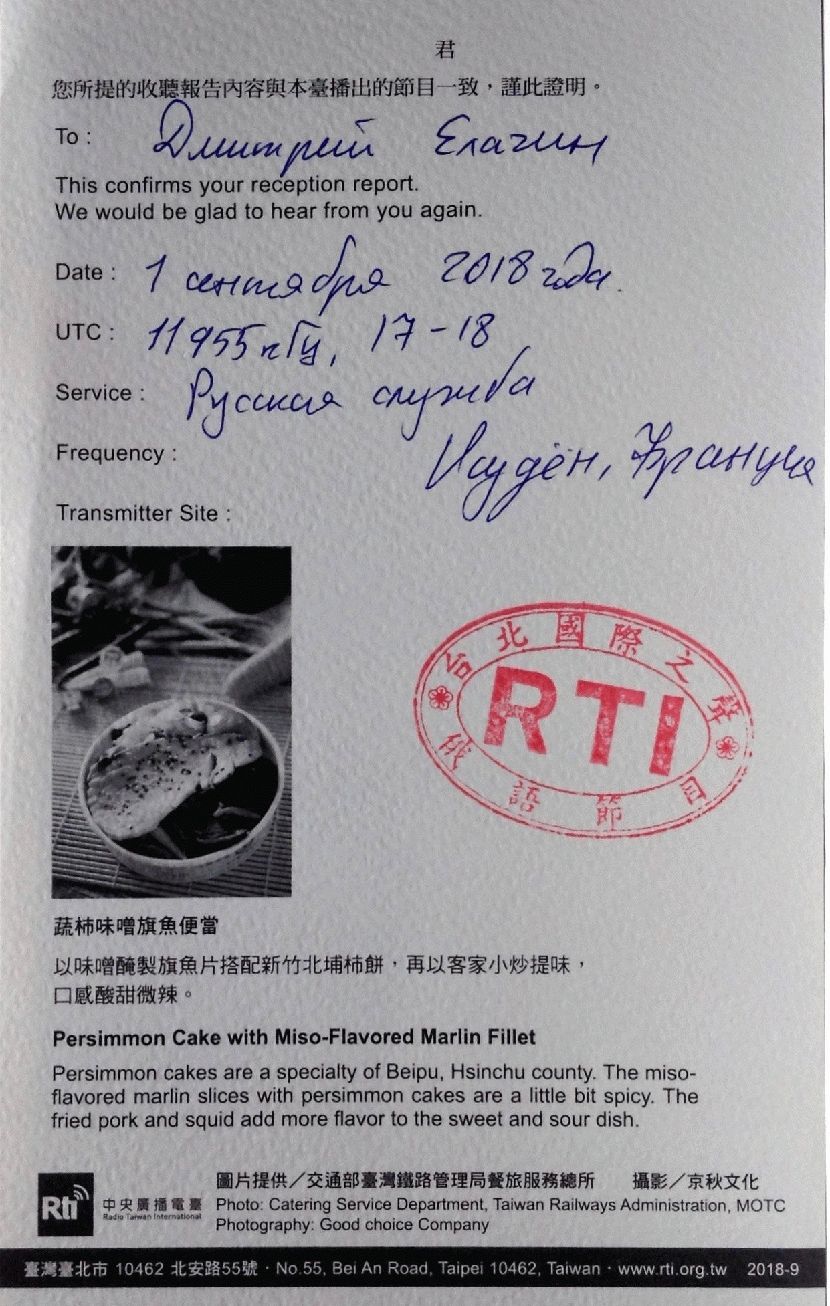 君
您所提的收聽報告內容與本臺播出的節目一致，謹此證明。
To : Дмитрий Елагин
This confirms your reception report.
We would be glad to hear from you again.
Date : 1 сентября 2018 года.
UTC : 11955 кГц, 17-18
Service : Русская служба
Frequency :
Исудён, Франция
Transmitter Site :
台北國際之聲
RTI
俄語節目
蔬柿味噌旗魚便當
以味噌醃製旗魚片搭配新竹北埔柿餅，再以客家小炒提味，
口感酸甜微辣。
Persimmon Cake with Miso-Flavored Marlin Fillet
Persimmon cakes are a specialty of Beipu, Hsinchu county. The miso-
flavored marlin slices with persimmon cakes are a little bit spicy. The
fried pork and squid add more flavor to the sweet and sour dish.
圖片提供／交通部臺灣鐵路管理局餐旅服務總所 攝影／京秋文化
Rti 中央廣播電臺 Photo: Catering Service Department, Taiwan Railways Administration, MOTC
Radio Taiwan International Photography: Good choice Company
臺灣臺北市 10462 北安路55號・No.55, Bei An Road, Taipei 10462, Taiwan・www.rti.org.tw 2018-9